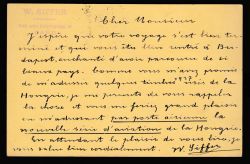 W. SIFFER
Cher Monsieur
J'espère que votre voyage s'est bien ter-
miné et que vous êtes bien rentré à Bu-
dapest, enchanté d'avoir parcouru de si
beaux pays. Comme vous m'avez promis
de m'adresser quelques timbres de la
Hongrie, je permets de vous rappeler
la chose et vous me feriez grand plaisir
en m'adressant par poste aérienne la
nouvelle série d'aviation de la Hongrie.
En attendant le plaisir de vous lire, je
vous salue bien cordialement. W. Siffer